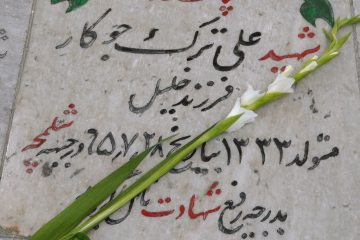 شهید
علی ترک جوکار
فرزند خلیل
متولد ۱۳۳۳ بتاریخ ۶۵٫۷٫۲۸ در جبهه شلمچه
بدرجه رفیع شهادت